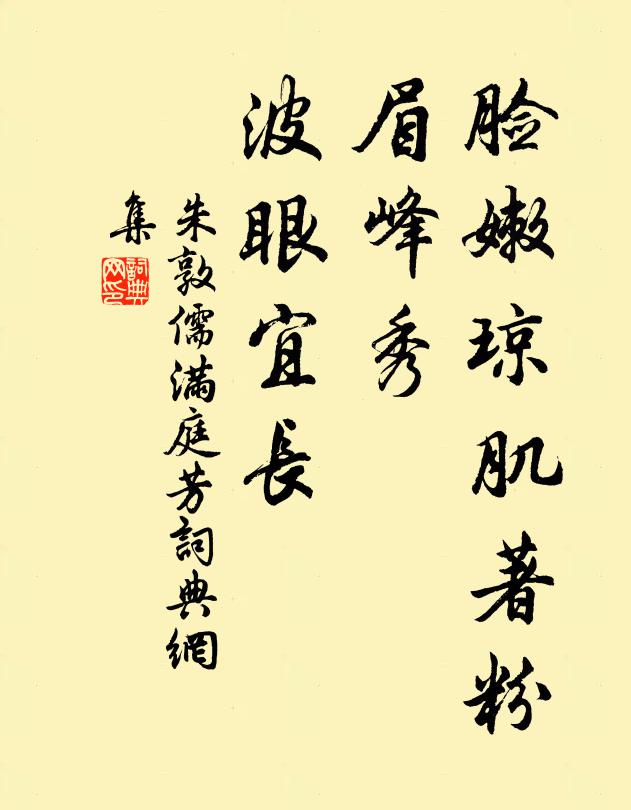 脸嫩琼肌著粉
眉峰秀
波眼宜長
朱敦儒滿庭芳詞典網
集
詞典
网印